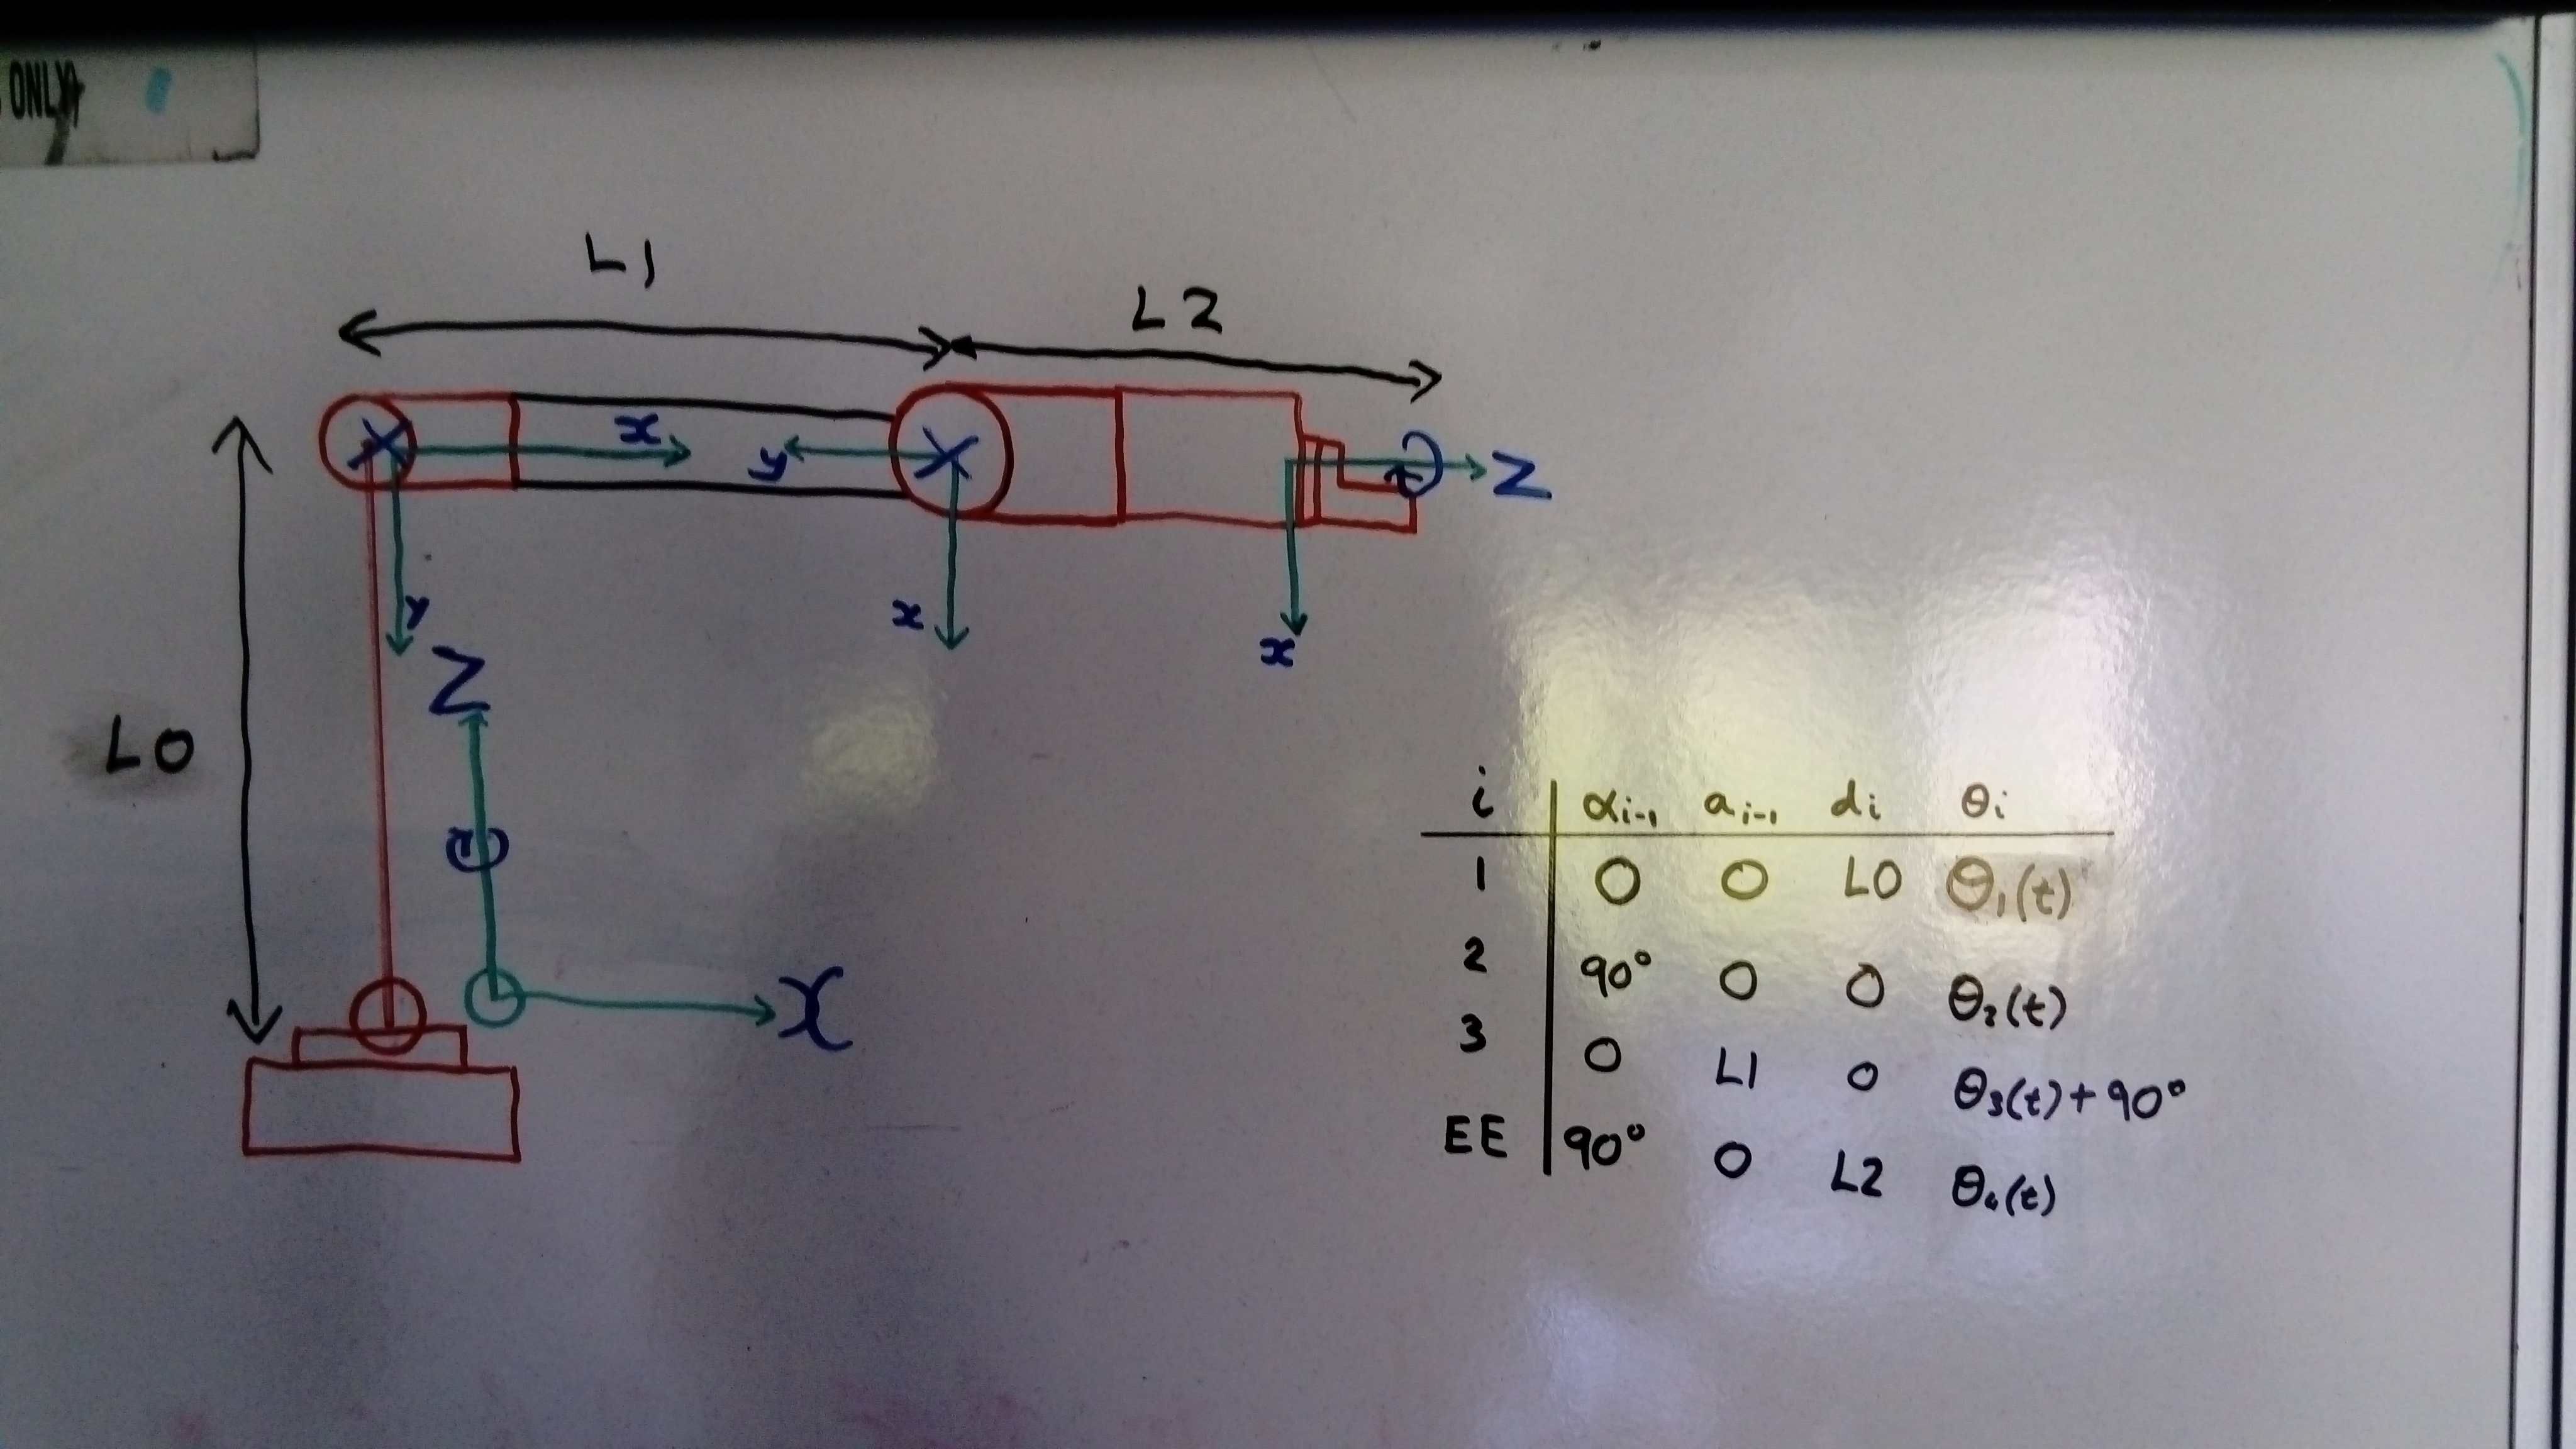 ONLY)
L1
L2
x
y
Z
y
x
x
Z
L0
X
i αi-1 ai-1 di θi
1 0 0 L0 θ1(t)
2 90° 0 0 θ2(t)
3 0 L1 0 θ3(t)+90°
EE 90° 0 L2 θ4(t)